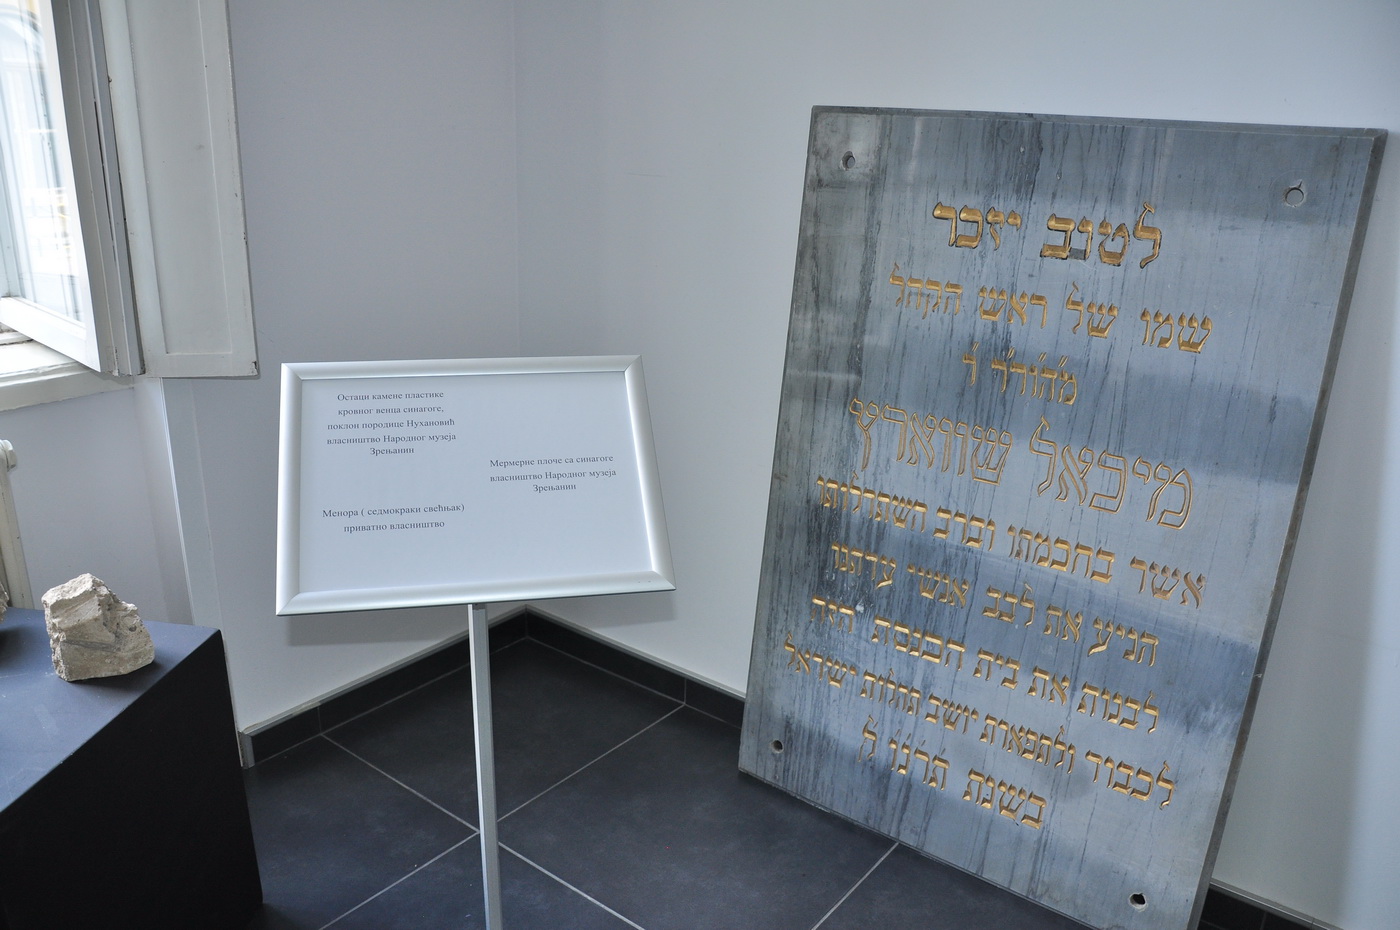 Остаци камене пластике
кровног венца синагоге,
поклон породице Нухановић
власништво Народног музеја
Зрењанин
Мермерне плоче са синагоге
власништво Народног музеја
Зрењанин
Менора ( седмокраки свећњак)
приватно власништво
לטוב יזכר
שמו של ראש הקהל
מ'הור'ר ר'
מיכאל שווארץ
אשר בחכמתו וברב השתדלותו
הניע את לבב אנשי עדתנו
לבנות את בית הכנסת הזה
לכבוד ולתפארת יושב תהלות ישראל
בשנת